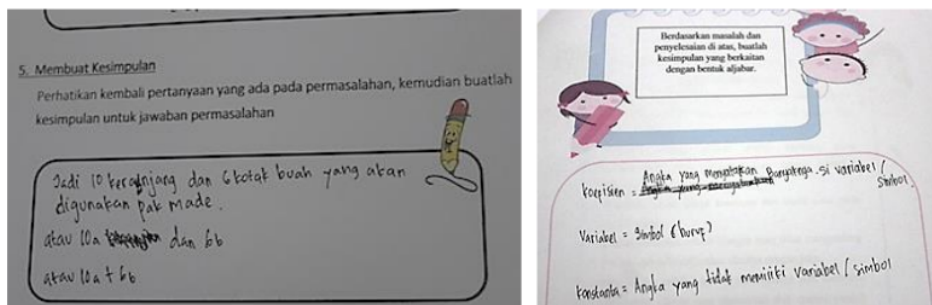 5. Membuat Kesimpulan
Perhatikan kembali pertanyaan yang ada pada permasalahan, kemudian buatlah
kesimpulan untuk jawaban permasalahan
Jadi 10 keranjang dan 6 kotak buah yang akan
digunakan pak made.
atau 10a dan 6b
atau 10a + 6b
Berdasarkan masalah dan
penyelesaian di atas, buatlah
kesimpulan yang berkaitan
dengan bentuk aljabar.
Koefisien = Angka yang menyatakan banyaknya si variabel /
Simbol.
Variabel = Simbol (huruf)
Konstanta = Angka yang tidak memiliki variabel / simbol